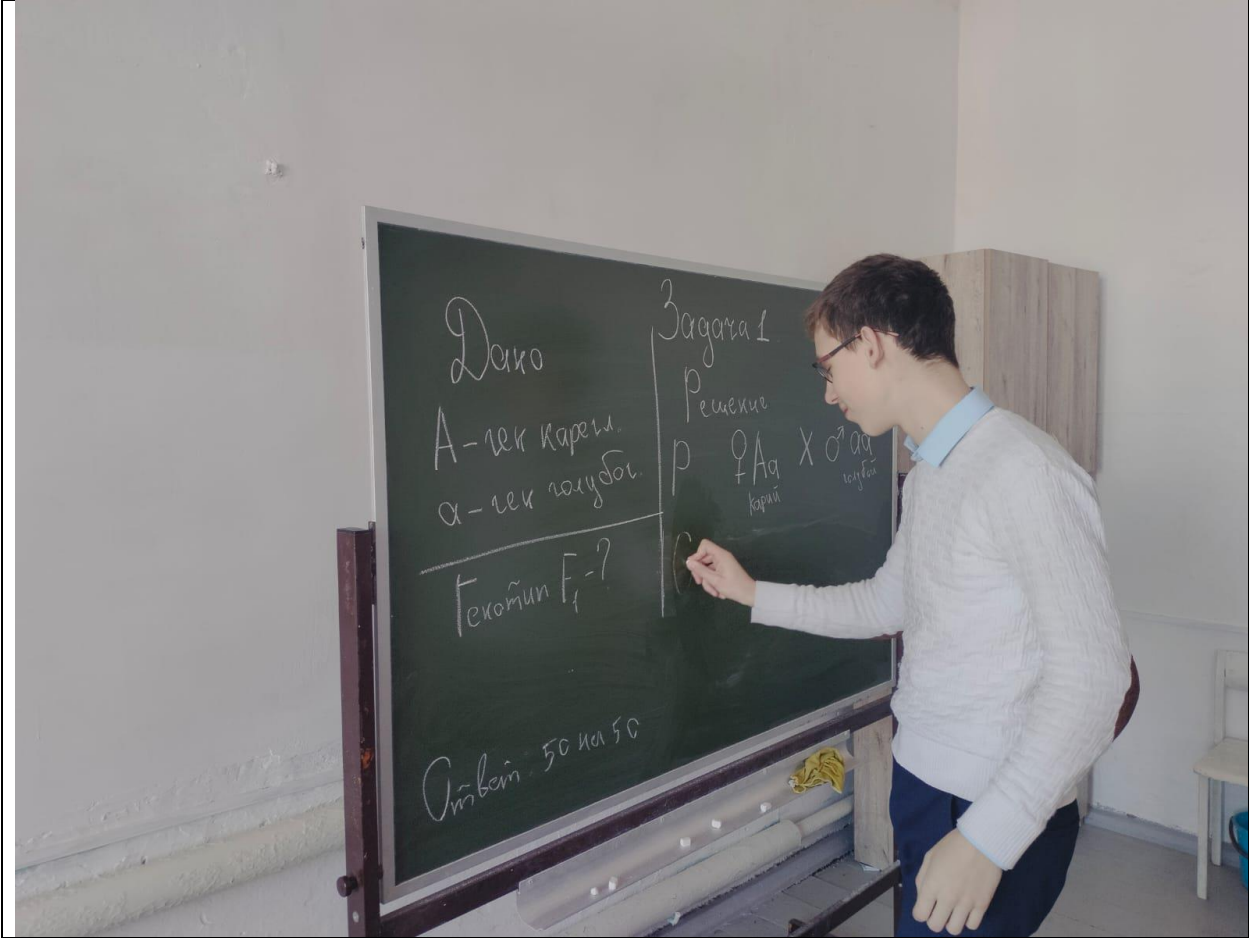 Дано
А – ген карегл.
а – ген голубог.
Генотип F₁ - ?
Ответ: 50 на 50
Задача 1
Решение
Р ♀Аа Х ♂аа
карий голубой
G